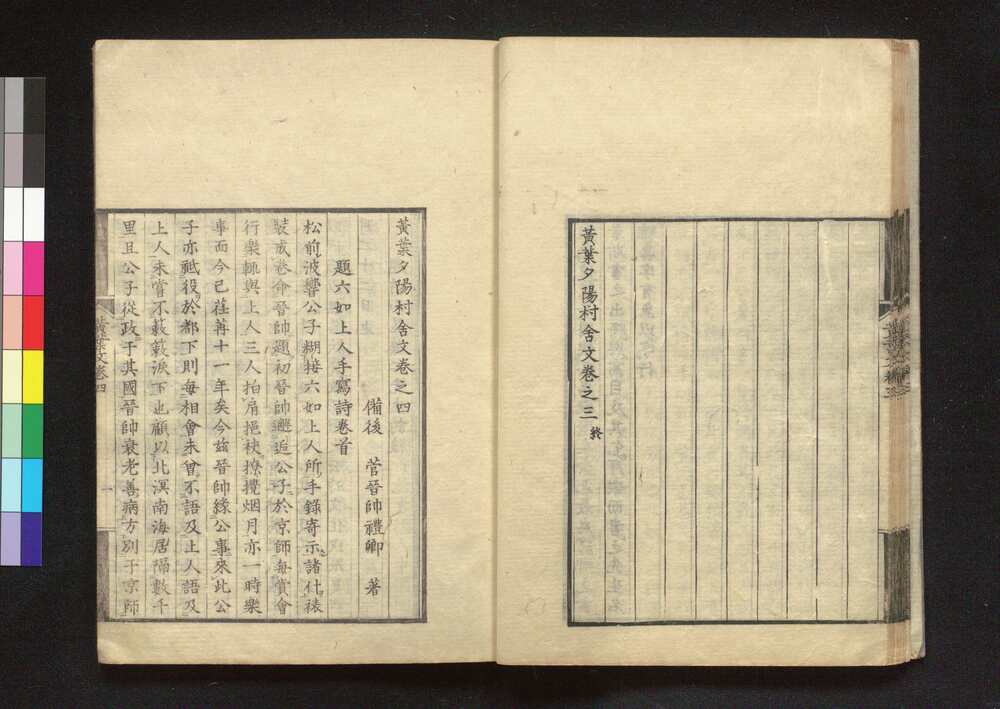 黃葉夕陽村舍文卷之三 終
黃葉夕陽村舍文卷之四
備後 菅晉帥禮卿 著
題六如上人手寫詩卷首
松前波響公子糊接六如上人所手錄寄示諸什裱
裝成卷命晉帥題初晉帥邂逅公子於京師每賞會
行樂輙與上人三人拍肩挹袂撩攬烟月亦一時樂
事而今已荏苒十一年矣今茲晉帥緣公事來此公
子亦祗役於都下則每相會未曾不語及上人語及
上人未嘗不簌簌淚下也顧以北溟南海居隔數千
里且公子從政于其國晉帥衰老善病方別于京師
黃葉文卷四
一